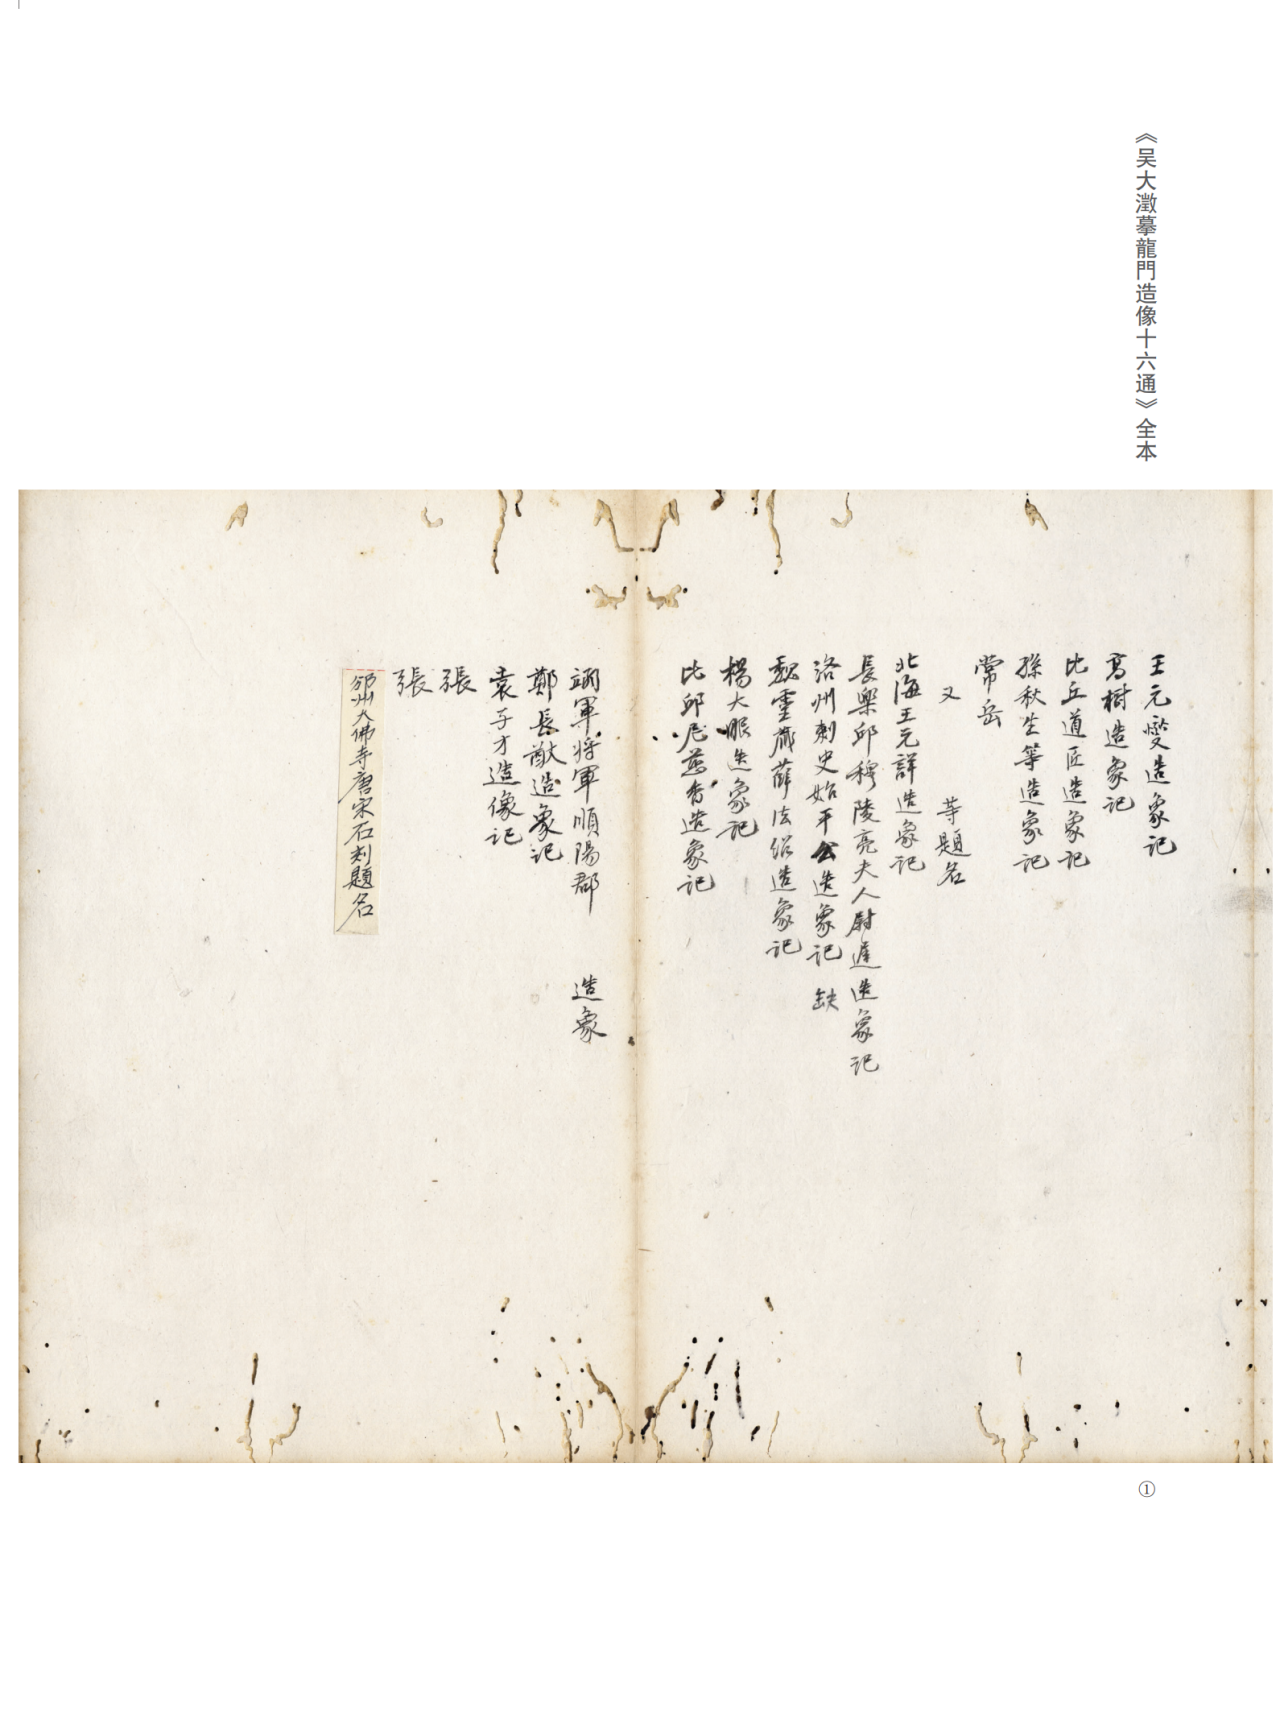 《吴大澂摹龍門造像十六通》全本
王元燮造象記
高樹造象記
比丘道匠造象記
孫秋生等造象記
常岳
又　　等題名
北海王元詳造象記
長樂邱穆陵亮夫人尉遲造象記
洛州刺史始平公造象記 缺
魏靈藏薛法紹造象記
楊大眼造象記
比邱尼慈香造象記
翊軍將軍順陽郡　　造象
鄭長猷造象記
袁子才造像記
張
張
邠州大佛寺唐宋石刻題名
①